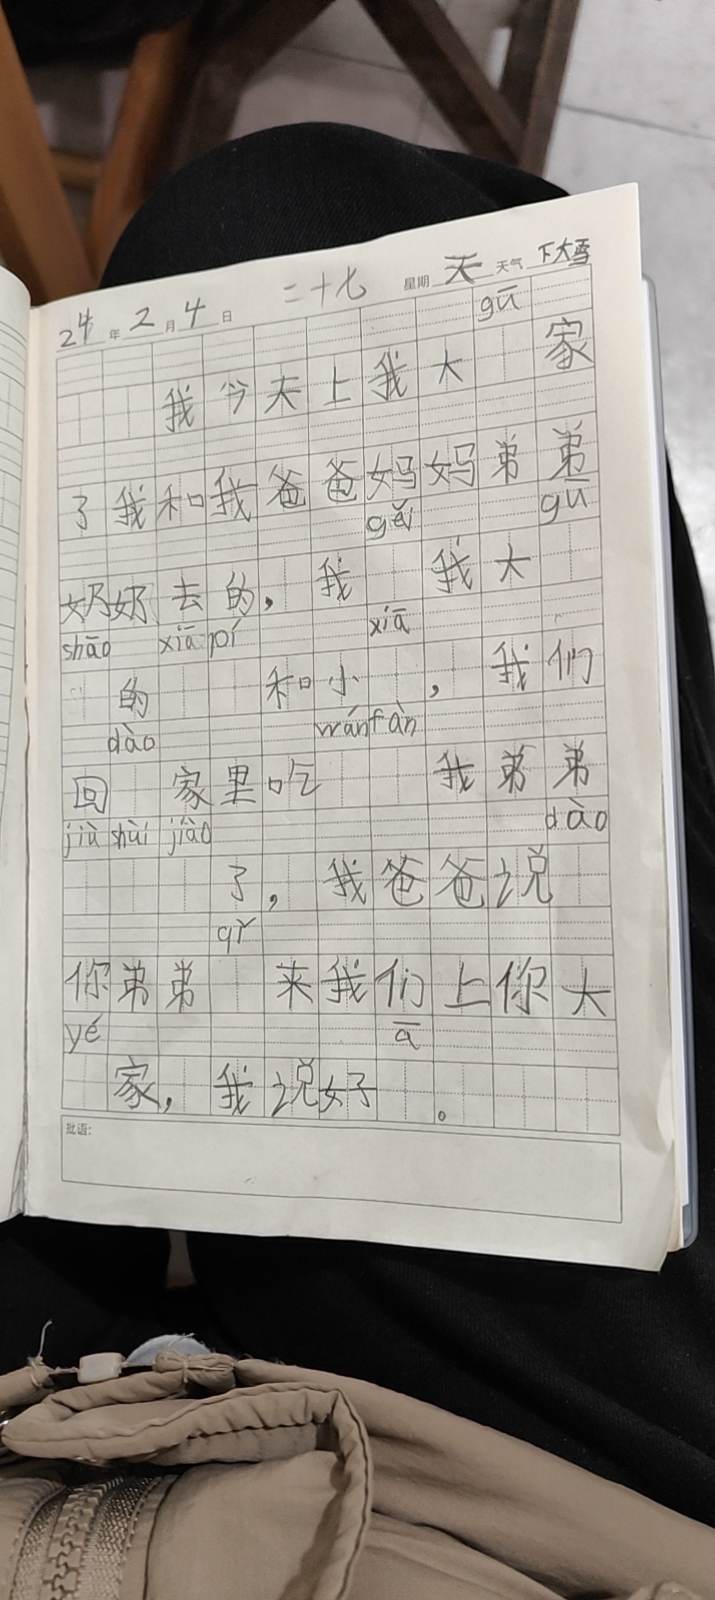 24年2月4日 二十七 星期天 天气下大雪
gū
我今天上我大 家
了我和我爸爸妈妈弟弟
gěi gū
奶奶去的，我 我大
shāo xiā pí xiā
的 和小 ，我们
dào wǎn fàn
回 家里吃 我弟弟
jiù shuì jiào dào
了，我爸爸说
qǐ
你弟弟 来我们上你大
yé a
家，我说好 。
批语：